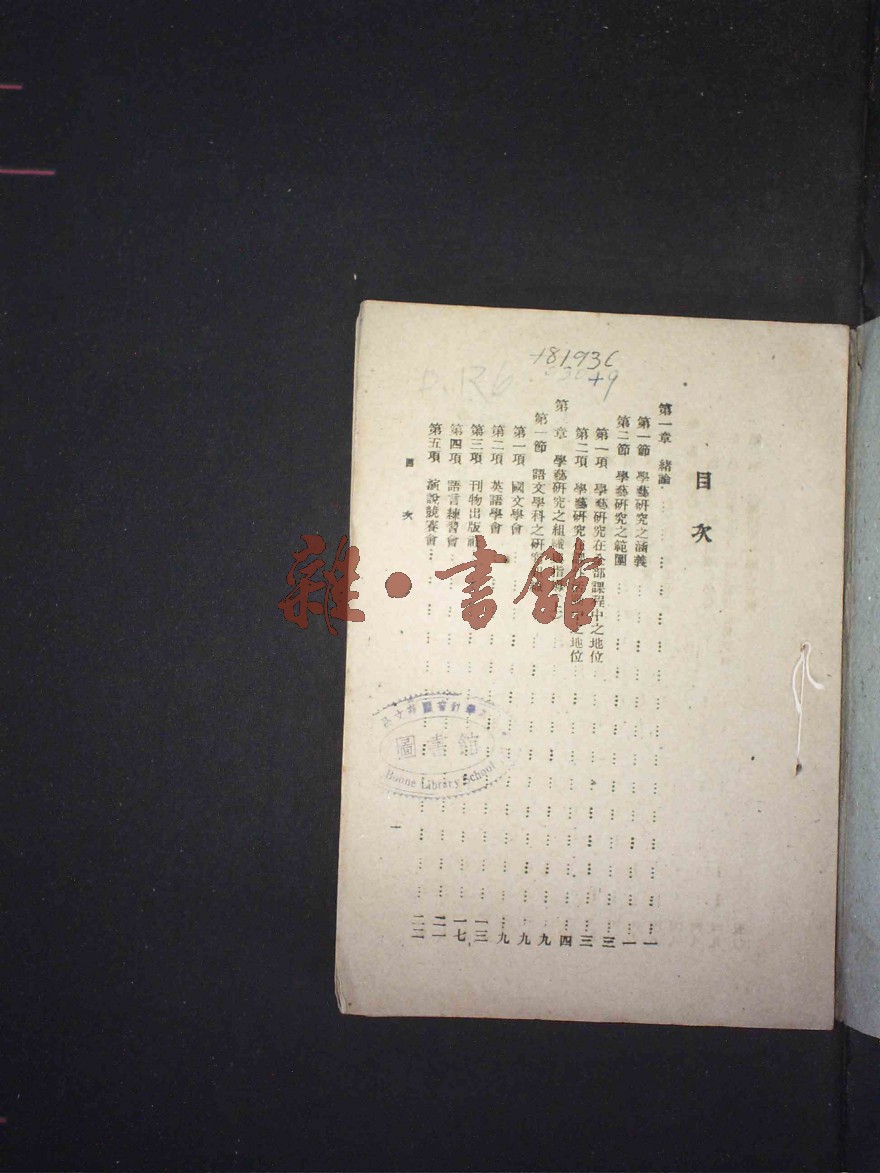 +8193C
+9
目次
第一章 緒論……一
第一節 學藝研究之涵義……一
第二節 學藝研究之範圍……三
第一項 學藝研究在全部課程中之地位……三
第二項 學藝研究 之地位……四
第 章 學藝研究之組織 指導……九
第一節 語文學科之研究……九
第一項 國文學會……九
第二項 英語學會……一三
第三項 刊物出版社……一七
第四項 語言練習會……二一
第五項 演說競賽會……二二
目次
一
圖書館
Boone Library School
雜·書館